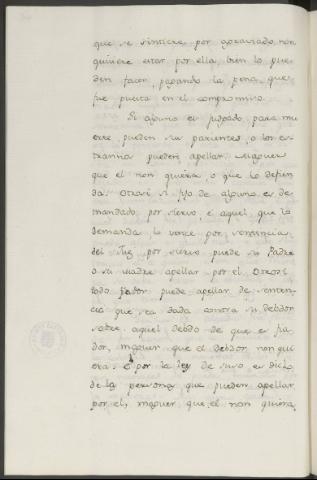 que se sintiere por agraviado, non
quisiere estar por ella, bien lo pue-
den facer, pagando la pena, que
fue puesta en el compromiso.
Si alguno es jusgado para mu
erte pueden sus parientes, o los es
traños pueden apellar, maguer
que el non quiera, o que lo defien
da. Otrosi si fijo de alguno es de
mandado por siervo, é aquel que lo
demanda lo vence por sentencia
del Juez por siervo puede su Padre
o su madre apellar por el. Otrosi
todo fiador puede apellar de senten-
cia que sea dada contra su debdor
sobre aquel debdo de que es fia-
dor, maguer que el debdor non qui
era. E por la ley de suso es dicho
de las personas que pueden apellar
por el, maguer que el non quiera,